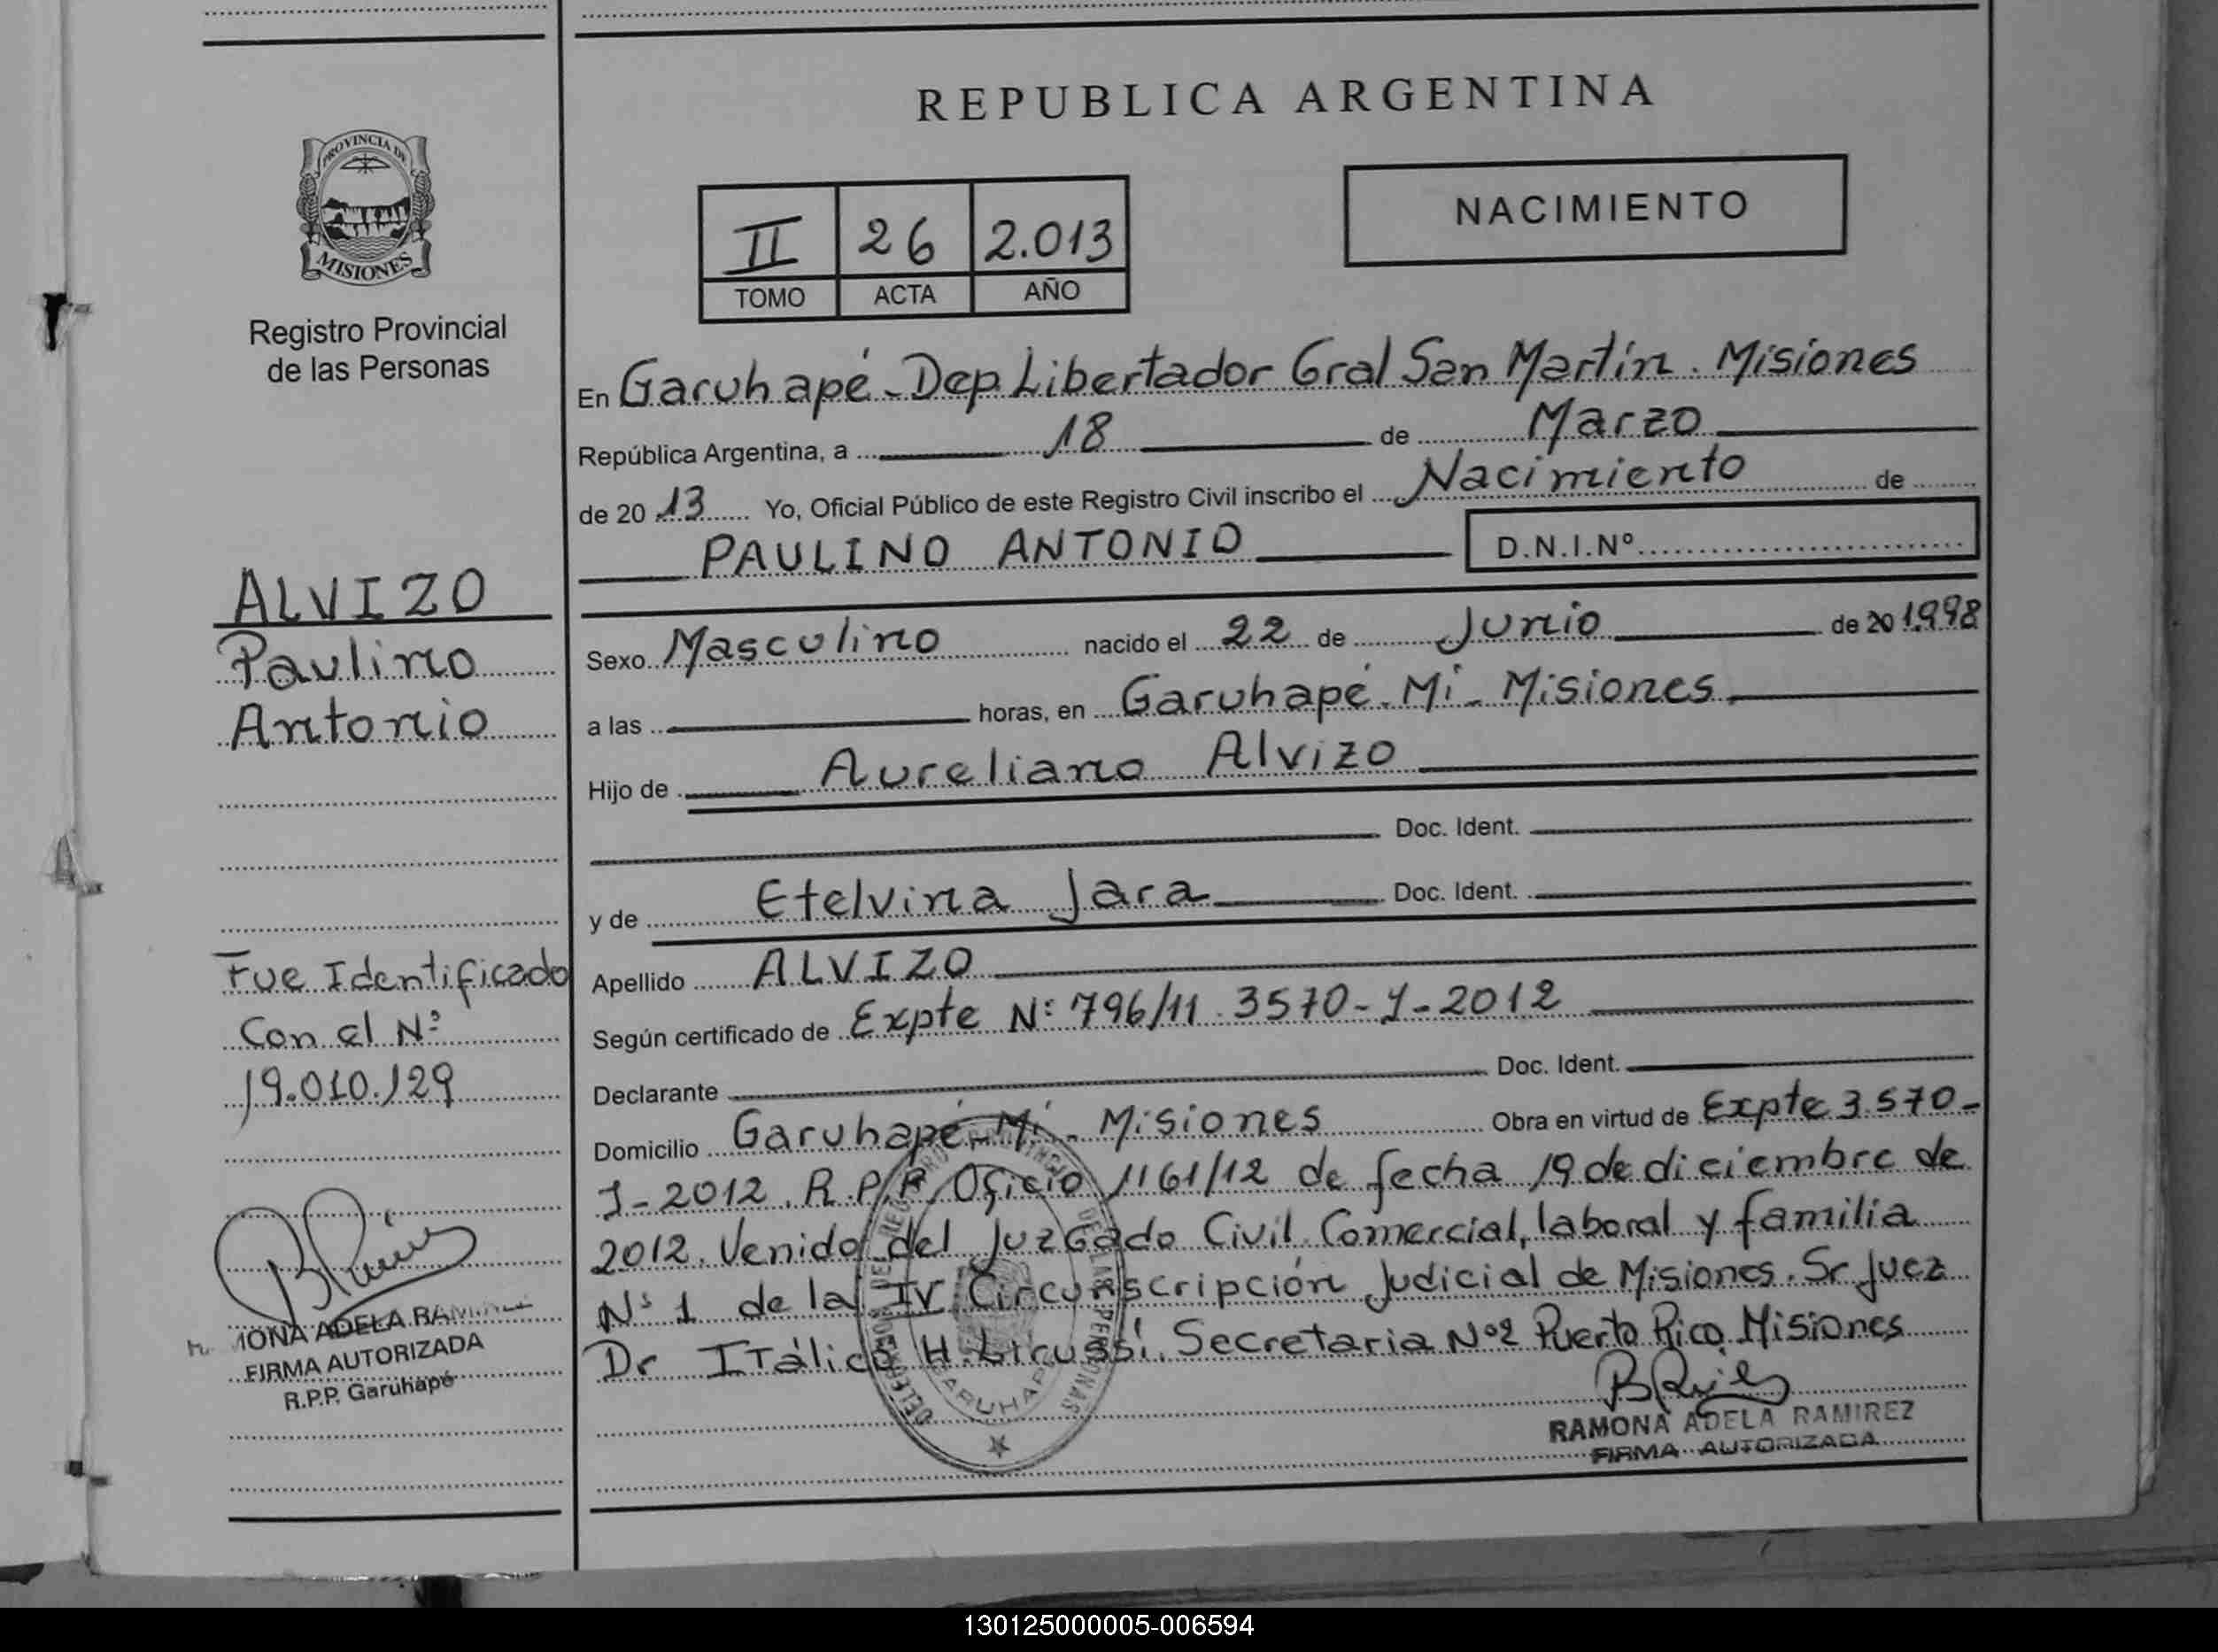 REPUBLICA ARGENTINA
PROVINCIA DE
MISIONES
Registro Provincial
de las Personas
NACIMIENTO
II 26 2.013
TOMO ACTA AÑO
En Garuhapé - Dep. Libertador Gral San Martín. Misiones
República Argentina, a 18 de Marzo
de 20 13 Yo, Oficial Público de este Registro Civil inscribo el Nacimiento de
PAULINO ANTONIO D.N.I.Nº
Sexo Masculino nacido el 22 de Junio de 20 1998
a las horas, en Garuhapé. Mi - Misiones
Hijo de Aureliano Alvizo
Doc. Ident.
y de Etelvina Jara Doc. Ident.
Apellido ALVIZO
Según certificado de Expte Nº 796/11 . 3570 - J - 2012
Declarante Doc. Ident.
Domicilio Garuhapé - Mi - Misiones Obra en virtud de Expte 3.570 -
J - 2012. R.P.P. Oficio 1161/12 de fecha 19 de diciembre de
2012. Venido del Juzgado Civil Comercial, laboral y familia
Nº 1 de la IV Circunscripción Judicial de Misiones. Sr Juez
Dr Itálico H. Secretaria Nº 2 Puerto Rico Misiones
RAMONA ADELA RAMIREZ
FIRMA AUTORIZADA
ALVIZO
Paulino
Antonio
Fue Identificado
Con el Nº
19.010.129
MONA ADELA RAMIREZ
FIRMA AUTORIZADA
R.P.P. Garuhapé
GARUHAPE
130125000005-006594